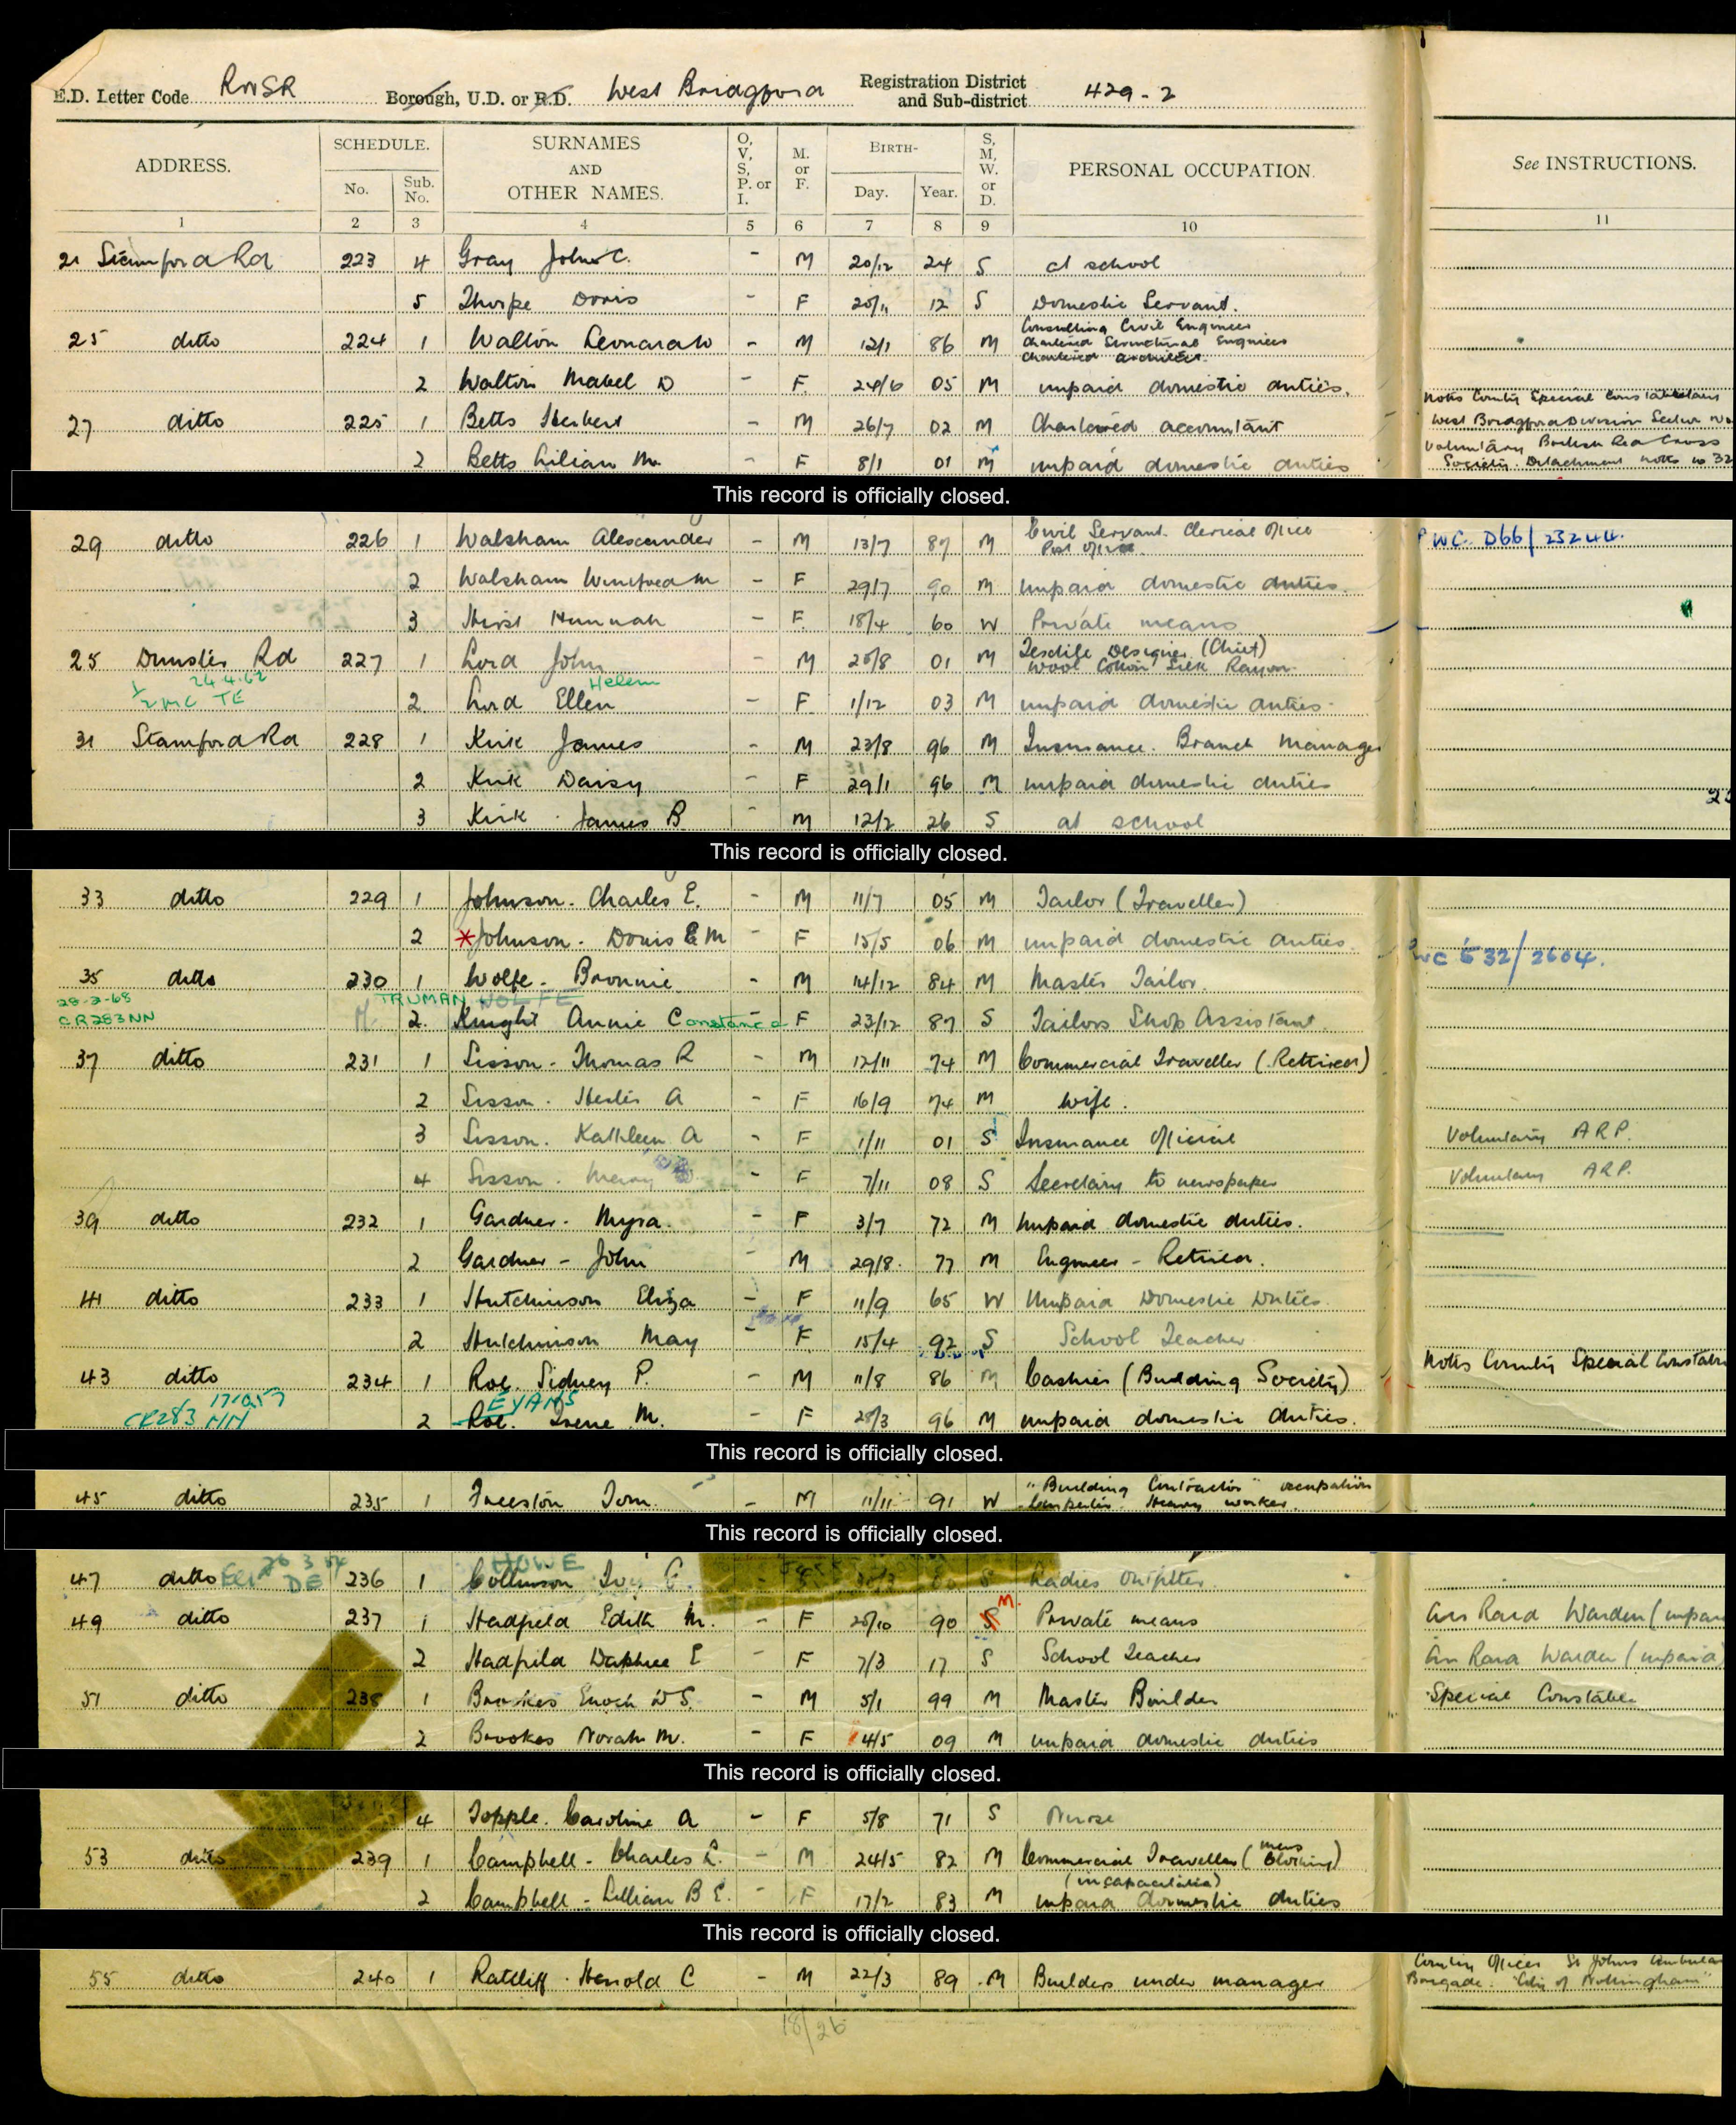 E.D. Letter Code RNSR Borough, U.D. or R.D. West Bridgford Registration District and Sub-district 429-2
ADDRESS. SCHEDULE. No. Sub. No. SURNAMES AND OTHER NAMES. O, V, S, P. or I. M. or F. BIRTH- Day. Year. S, M, W. or D. PERSONAL OCCUPATION. See INSTRUCTIONS.
1 2 3 4 5 6 7 8 9 10 11
21 Stamford Rd 223 4 Gray John C. - M 20/12 24 S at school
5 Thorpe Doris - F 20/11 12 S Domestic Servant.
25 ditto 224 1 Walton Leonard W - M 12/1 86 M Consulting Civil Engineer Chartered Structural Engineer Chartered architect.
2 Walton Mabel D - F 24/6 05 M unpaid domestic duties.
27 ditto 225 1 Betts Herbert - M 26/7 02 M Chartered accountant Notts County Special Constabulary West Bridgford Division Sector
2 Betts Lilian M. - F 8/1 01 M unpaid domestic duties Voluntary British Red Cross Society. Detachment Notts 32
This record is officially closed.
29 ditto 226 1 Walsham Alexander - M 13/7 87 M Civil Servant. Clerical Officer Post Office WC D66/23244.
2 Walsham Winifred M - F 29/7 90 M unpaid domestic duties.
3 Hirst Hannah - F 18/4 60 W Private means
25 Dunster Rd 227 1 Lord John - M 20/8 01 M Textile Designer (Chief) Wool Cotton Silk Rayon.
24.4.62 TE Helen
2 Lord Ellen - F 1/12 03 M unpaid domestic duties.
31 Stamford Rd 228 1 Kirk James - M 23/8 96 M Insurance. Branch Manager
2 Kirk Daisy - F 29/1 96 M unpaid domestic duties
3 Kirk James B. - M 12/2 26 S at school
This record is officially closed.
33 ditto 229 1 Johnson. Charles E. - M 11/7 05 M Tailor (Traveller)
2 *Johnson. Doris E M - F 15/5 06 M unpaid domestic duties. WC 632/2604.
35 ditto 230 1 Wolfe. Bronnie - M 14/12 84 M Master Tailor
28-2-68 TRUMAN WOLFE
CR283NN 2. Knight Annie Constance F 23/12 87 S Tailors Shop Assistant.
37 ditto 231 1 Sisson. Thomas R - M 12/11 74 M Commercial Traveller (Retired)
2 Sisson. Hester A - F 16/9 74 M wife.
3 Sisson. Kathleen A - F 1/11 01 S Insurance Official Voluntary ARP.
4 Sisson. Mary - F 7/11 08 S Secretary to newspaper Voluntary ARP.
39 ditto 232 1 Gardner. Myra. - F 3/7 72 M unpaid domestic duties.
2 Gardner - John - M 29/8. 77 M Engineer - Retired.
41 ditto 233 1 Hutchinson Eliza - F 11/9 65 W Unpaid Domestic Duties.
2 Hutchinson May - F 15/4 92 S School Teacher
43 ditto 234 1 Roe. Sidney P. - M 11/8 86 M Cashier (Building Society) Notts County Special Constab
EVANS
CR283 NN 2 Roe. Irene M. - F 28/3 96 M unpaid domestic duties.
This record is officially closed.
45 ditto 235 1 Freeston Tom. - M 11/11 91 W "Building Contractor" occupation Carpenter. Heavy worker.
This record is officially closed.
26 3 54 DE HOWE
47 ditto 236 1 Collinson - S Ladies Outfitter.
49 ditto 237 1 Hadfield Edith M. - F 20/10 90 S M. Private means Air Raid Warden (unpaid
2 Hadfield Daphne E - F 7/3 17 S School Teacher Air Raid Warden (unpaid)
51 ditto 238 1 Brookes Enoch W S. - M 5/1 99 M Master Builder Special Constable
2 Brookes Norah M. - F 4/5 09 M unpaid domestic duties
This record is officially closed.
4 Topple. Caroline A - F 5/8 71 S Nurse
53 ditto 239 1 Campbell - Charles L. - M 24/5 82 M Commercial Traveller (mens clothing) (incapacitated)
2 Campbell - Lillian B E. - F 17/2 83 M unpaid domestic duties
This record is officially closed.
55 ditto 240 1 Ratcliff. Harold C - M 22/3 89 M Builders under manager County Officer St Johns Ambulan Brigade. "City of Nottingham"
18/26